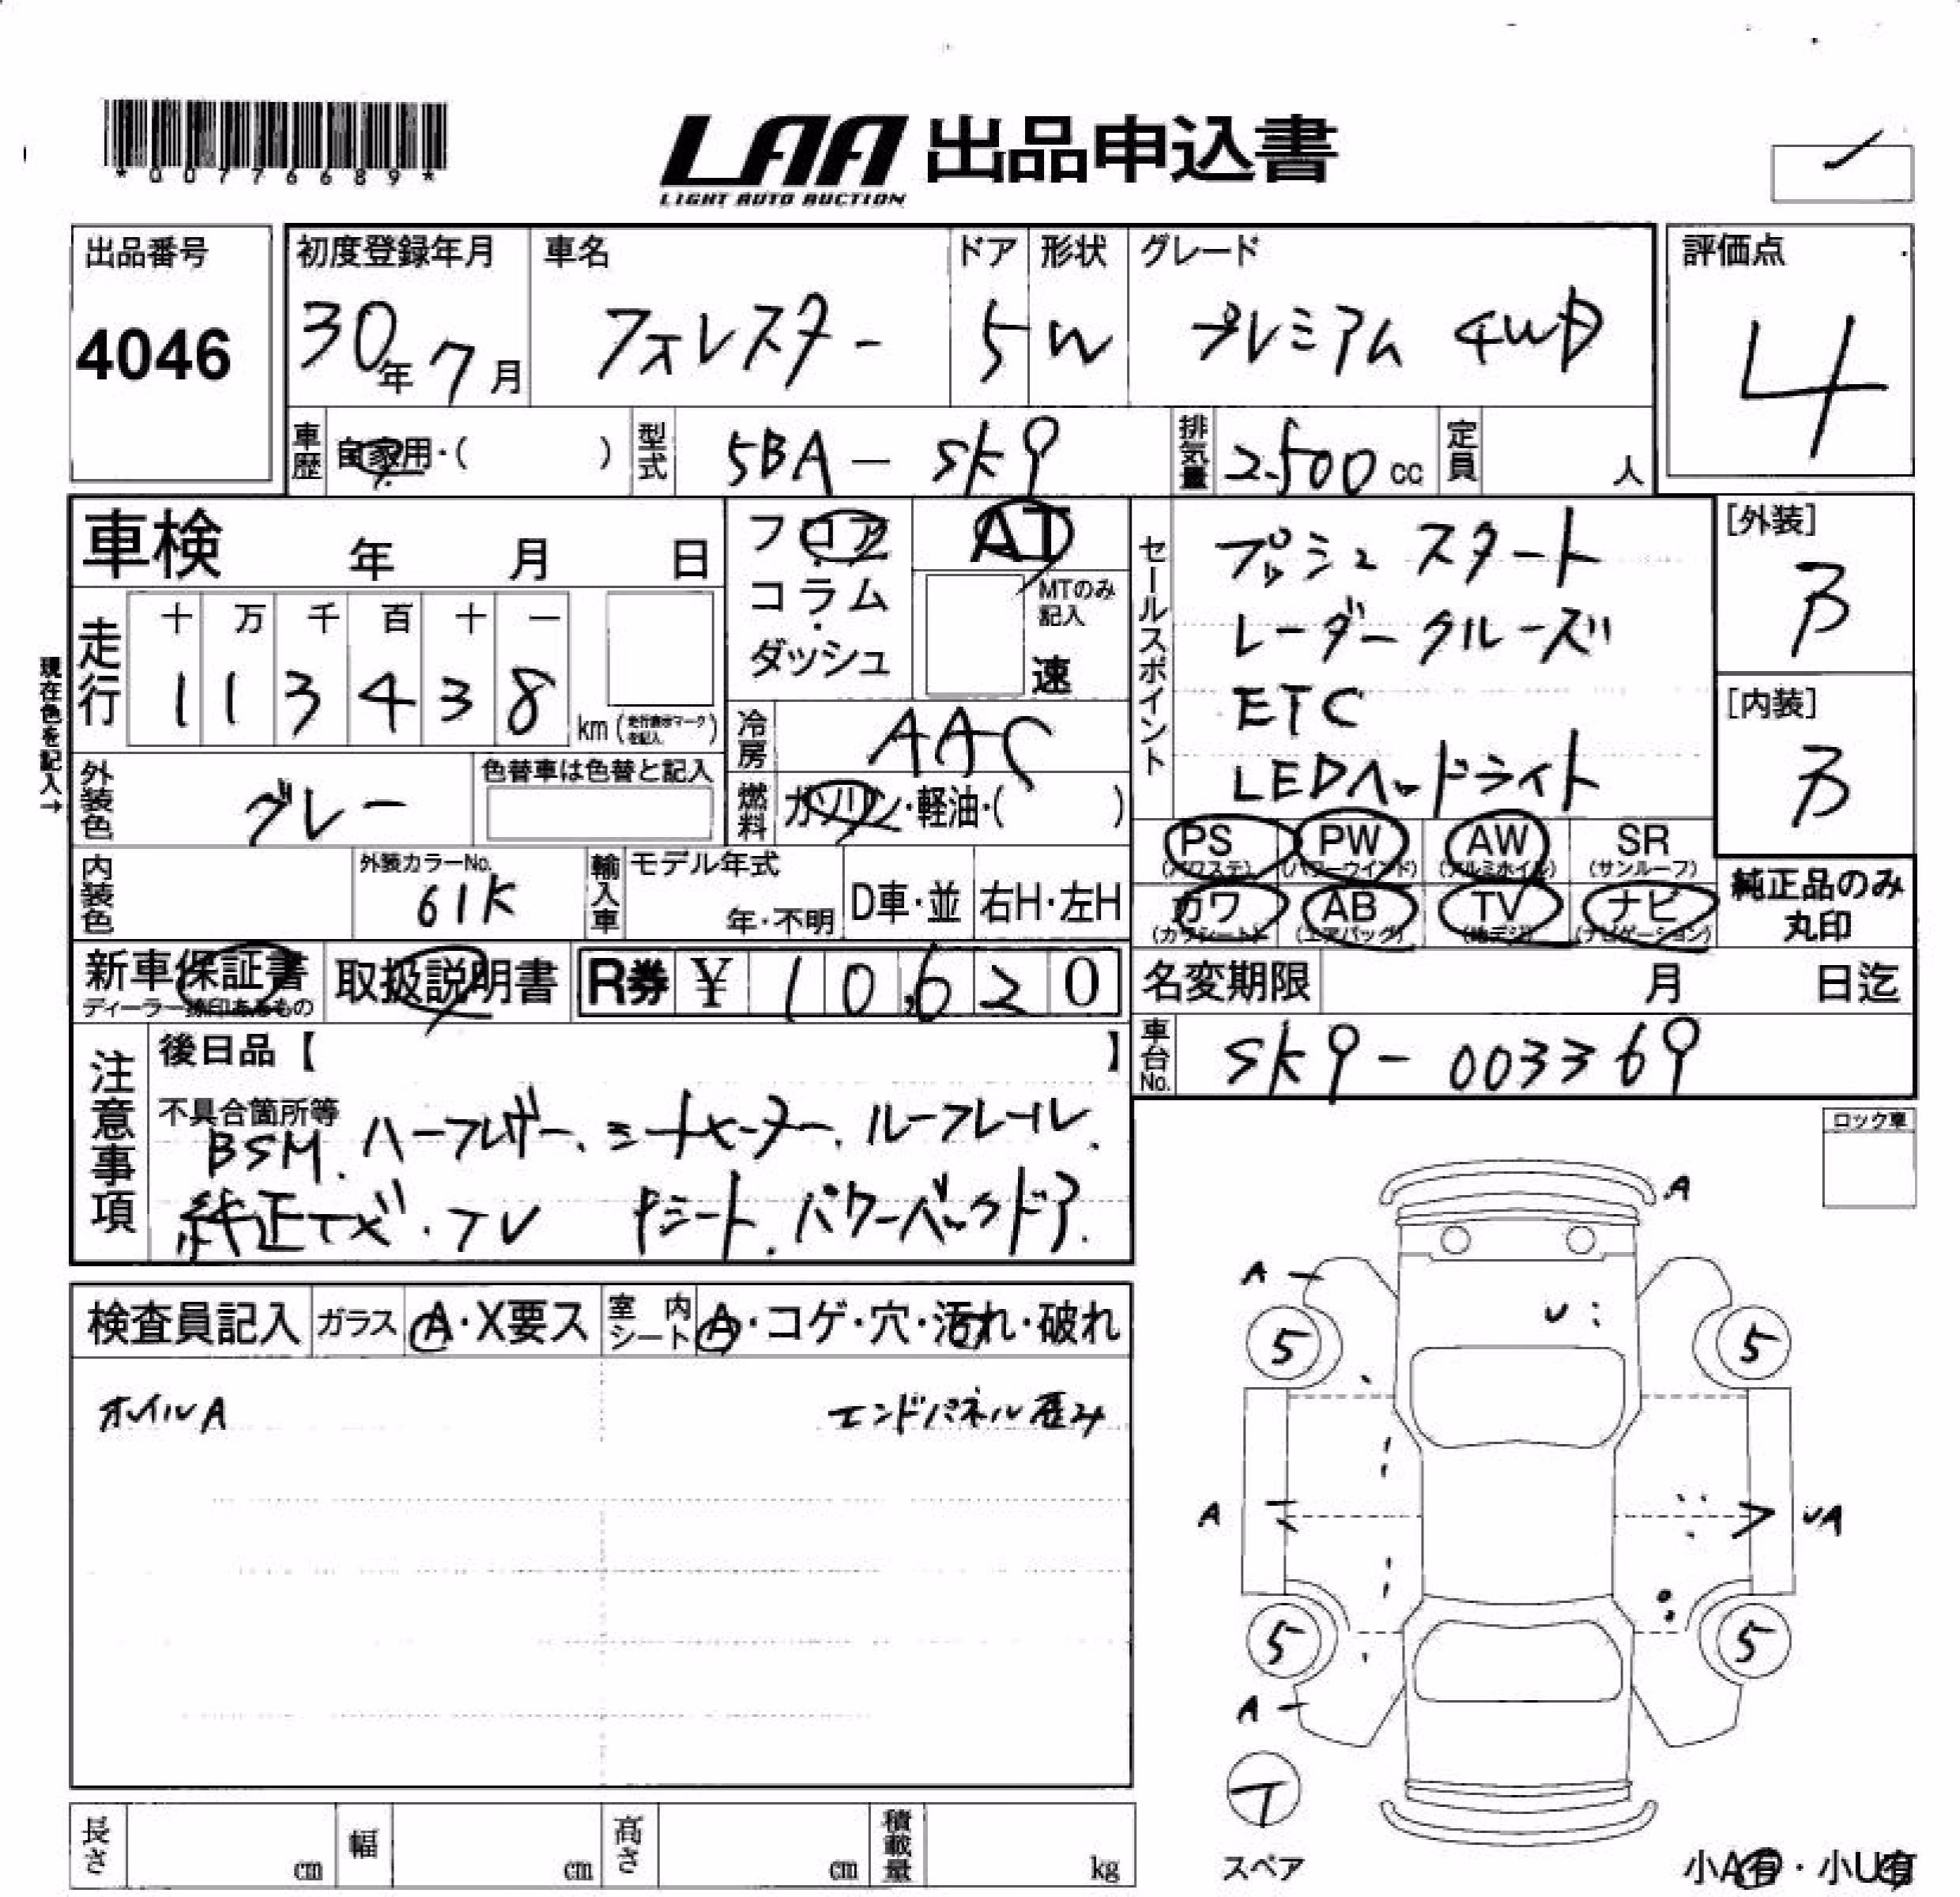 *00776689*
LAA 出品申込書
LIGHT AUTO AUCTION
出品番号
4046
初度登録年月
30年 7月
車名
フォレスター
ドア
5
形状
W
グレード
プレミアム 4WD
評価点
4
車歴 自家用・( )
型式 5BA-SK9
排気量 2500 cc
定員 人
車検 年 月 日
フロア
コラム
ダッシュ
AT
MTのみ記入
速
セールスポイント
プッシュスタート
レーダークルーズ
ETC
LEDヘッドライト
[外装]
B
[内装]
B
現在色を記入→
走行
十 万 千 百 十 一
1 1 3 4 3 8 km (走行表示マークを記入)
冷房 AAC
外装色 グレー
色替車は色替と記入
燃料 ガソリン・軽油・( )
PS (パワステ)
PW (パワーウインド)
AW (アルミホイル)
SR (サンルーフ)
カワ (カワシート)
AB (エアバッグ)
TV (地デジ)
ナビ (ナビゲーション)
純正品のみ
丸印
内装色
外装カラーNo.
61K
輸入車
モデル年式
年・不明
D車・並
右H・左H
新車保証書
ディーラー捺印あるもの
取扱説明書
R券 ¥ 10,620
名変期限 月 日迄
車台No. SK9-003369
注意事項
後日品【 】
不具合箇所等
BSM. ハーフレザー、シートヒーター、ルーフレール、
純正ナビ・TV Pシート、パワーバックドア.
ロック車
検査員記入
ガラス A・X要ス
室内シート A・コゲ・穴・汚れ・破れ
ホイルA
エンドパネル歪み
A
A
5
5
A
UA
5
5
A
U
T
スペア
小A有・小U有
長さ cm
幅 cm
高さ cm
積載量 kg